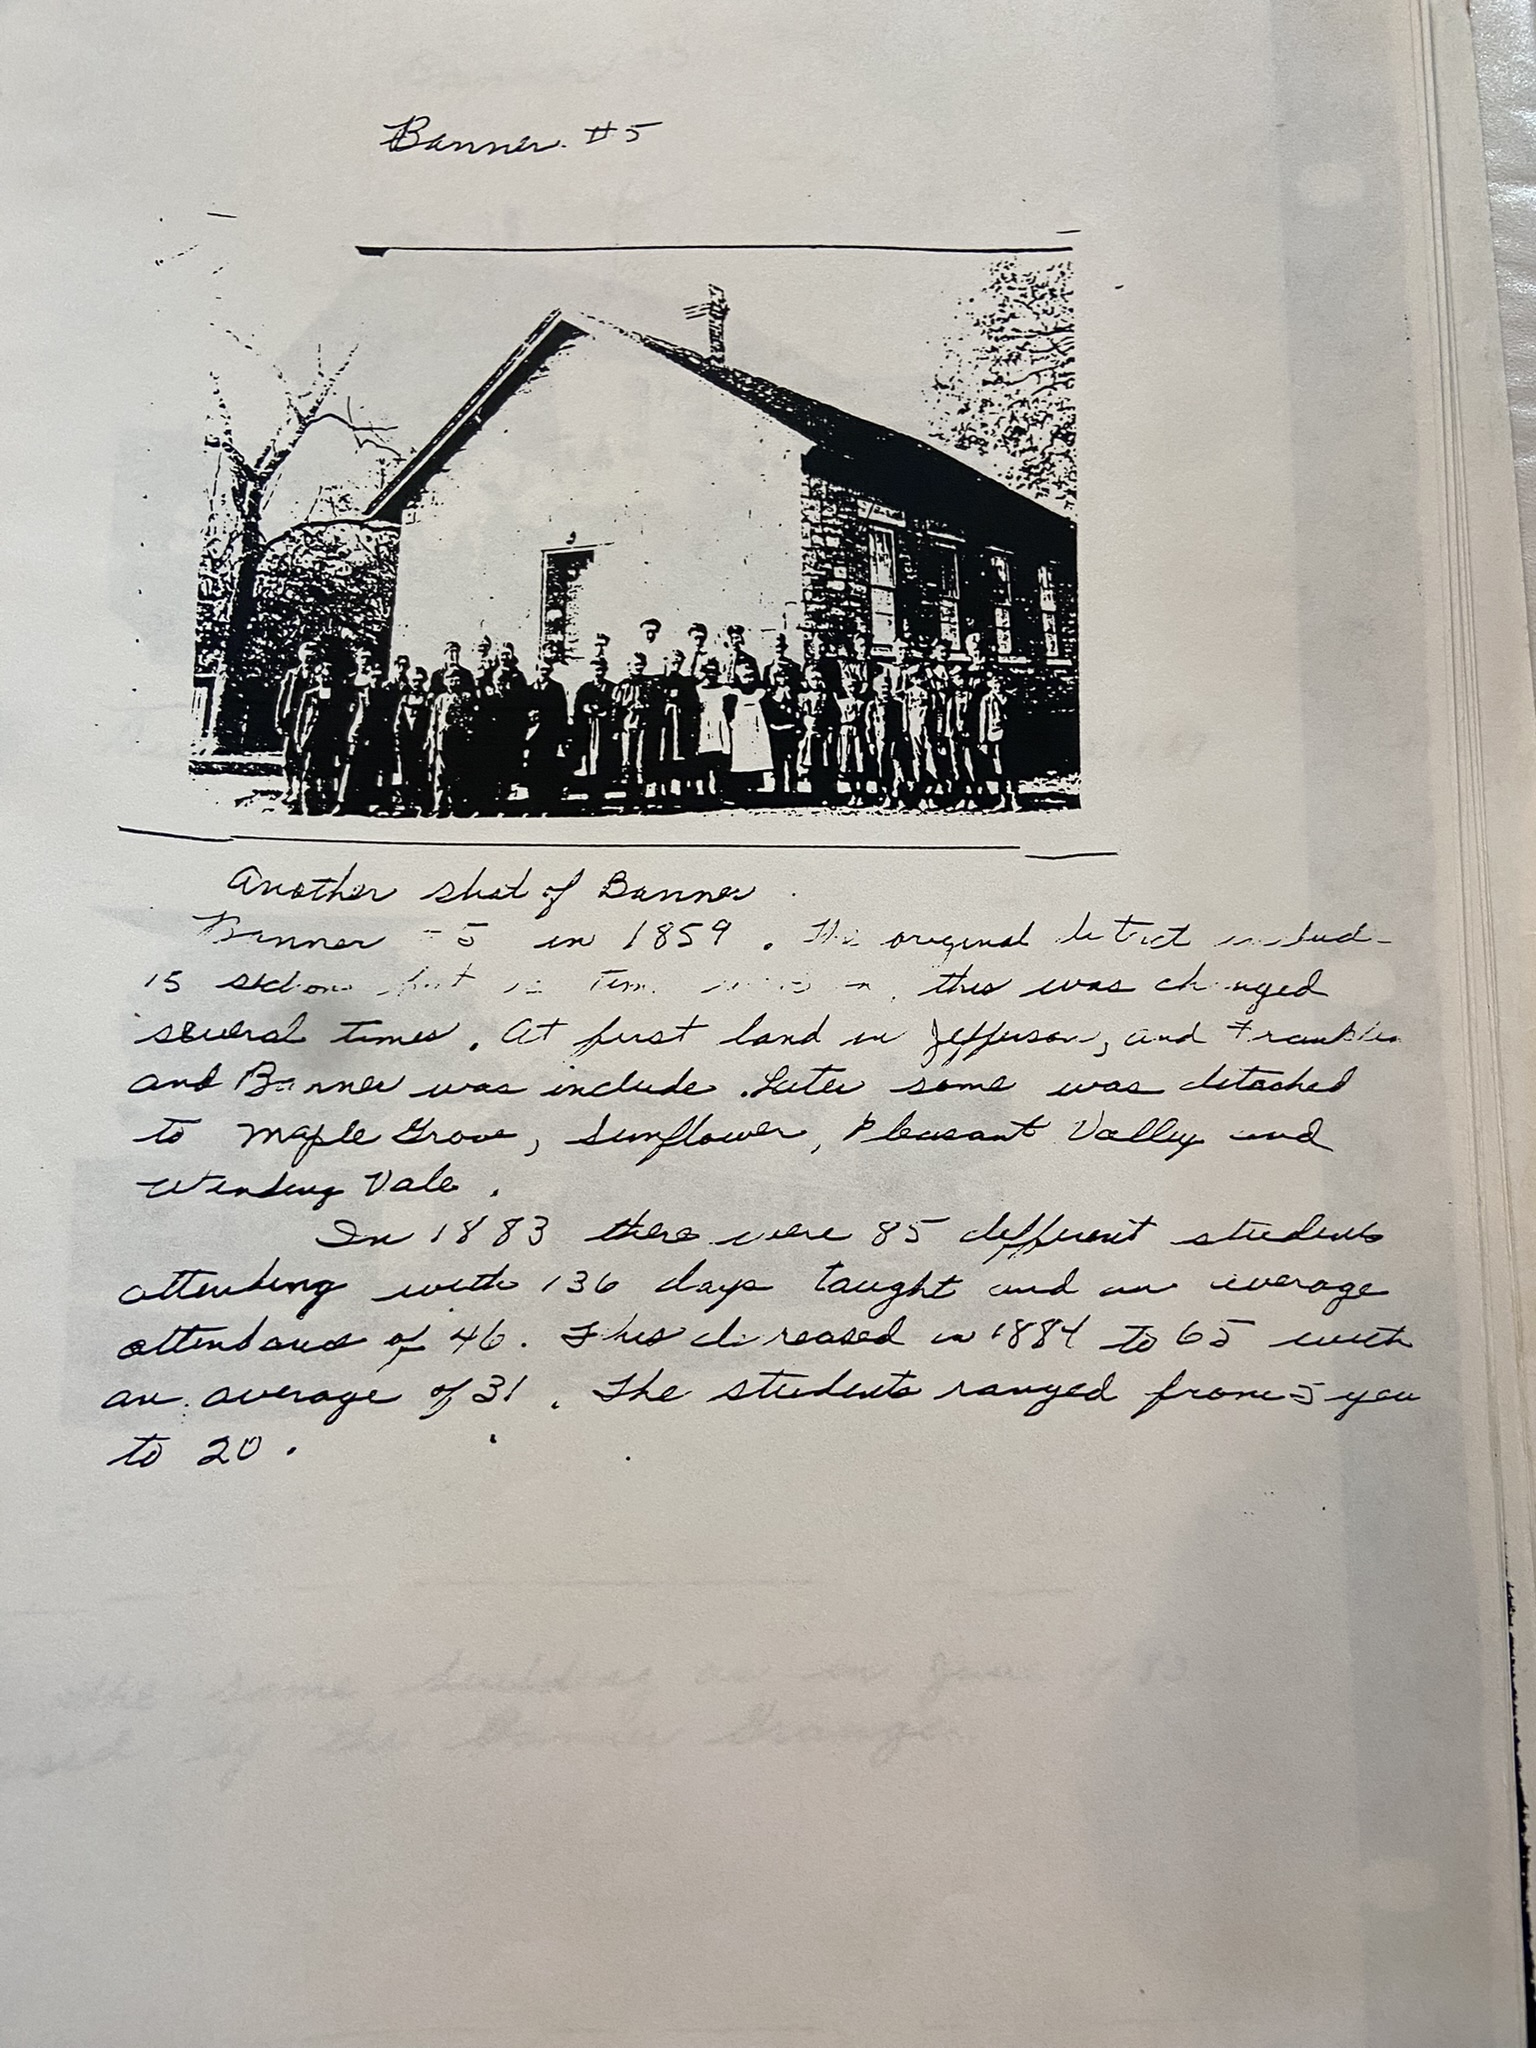 Banner #5
Another shot of Banner
Banner #5 in 1859. The original district includ-
15 sections but in time this was changed
several times. At first land in Jefferson, and Franklin
and Banner was include. Later some was detached
to Maple Grove, Sunflower, Pleasant Valley and
Winding Vale.
In 1883 there were 85 different students
attending with 136 days taught and an average
attendance of 46. This decreased in 1884 to 65 with
an average of 31. The students ranged from 5 yea
to 20.
the same building as in June 1983
used by the Banner Grange.